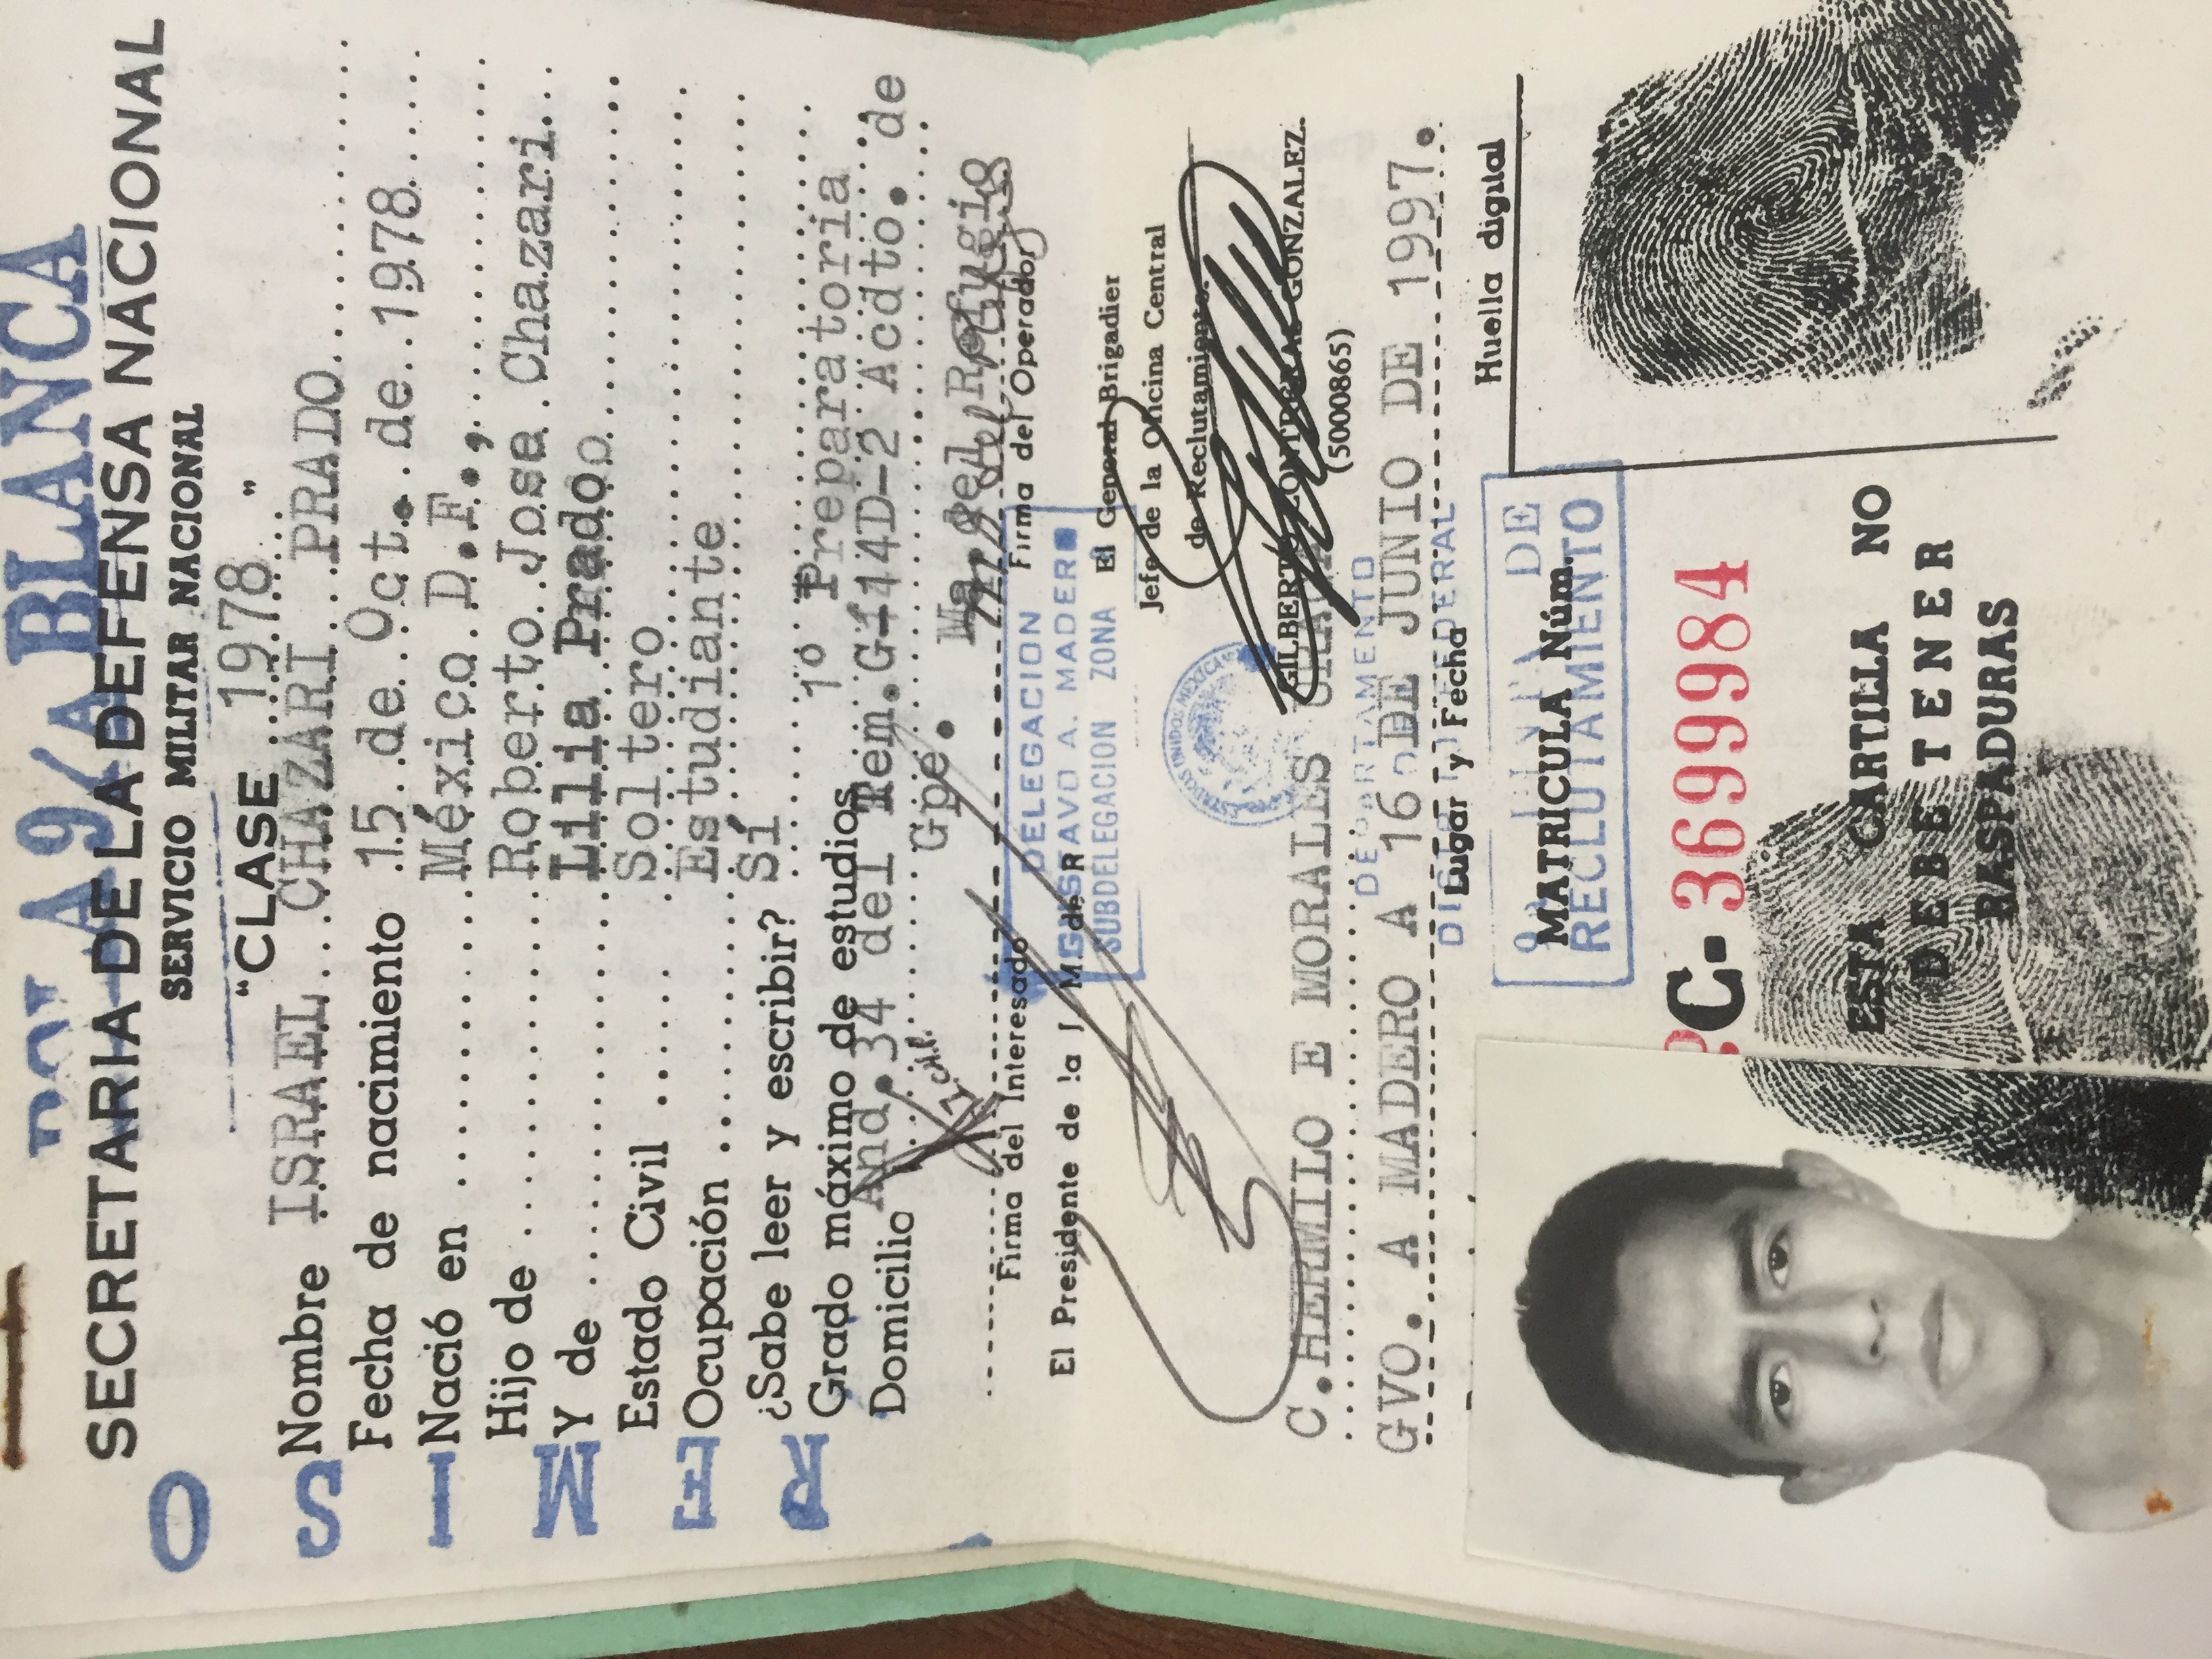 BOLA BLANCA
SECRETARIA DE LA DEFENSA NACIONAL
SERVICIO MILITAR NACIONAL
"CLASE 1978 "
Nombre ISRAEL CHAZARI PRADO
Fecha de nacimiento 15 de Oct. de 1978
Nació en México D.F.,
Hijo de Roberto Jose Chazari
Y de Lilia Prado
Estado Civil Soltero
Ocupación Estudiante
¿Sabe leer y escribir? Sí
Grado máximo de estudios 1o Preparatoria
Domicilio And.34 del Tem.G-14D-2 Acdto. de
Gpe.
Firma del Interesado
Firma del Operador
DELEGACION
GUSTAVO A. MADERO
SUBDELEGACION ZONA
El Presidente de la J. M. de R
El General Brigadier
Jefe de la Oficina Central
de Reclutamiento.
ESTADOS UNIDOS MEXICANOS
GILBERTO CONTRERAS GONZALEZ.
(50008665)
C.HERMILO E MORALES
DEPARTAMENTO
GVO. A MADERO A 16 DE JUNIO DE 1997.
DISTRITO FEDERAL
Lugar y Fecha
Huella digital
JUNTA DE
RECLUTAMIENTO
MATRICULA Núm.
C- 369984
ESTA CARTILLA NO
DEBE TENER
RASPADURAS
O
S
I
M
E
R